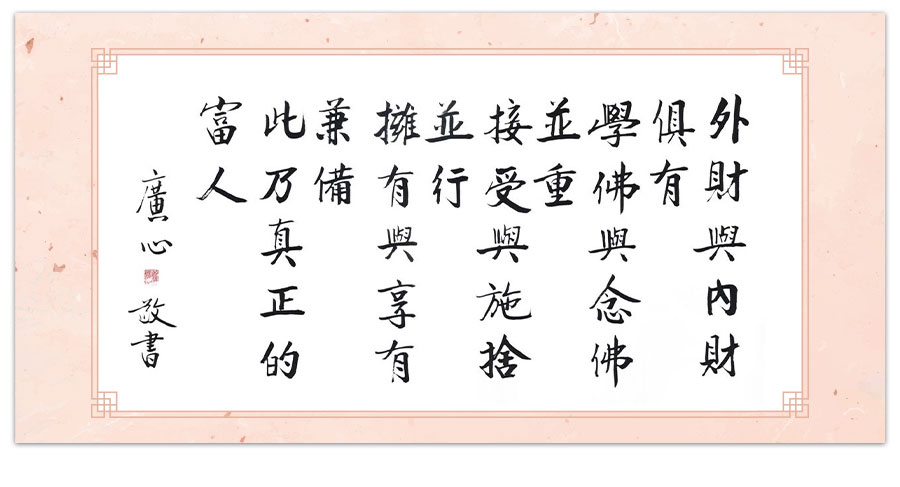 外財與內財
俱有
學佛與念佛
並重
接受與施捨
並行
擁有與享有
兼備
此乃真正的
富人
廣心
敬書